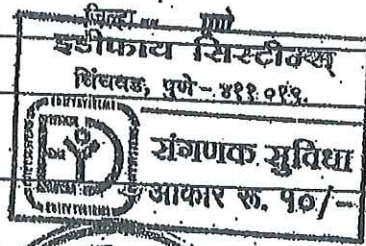 जिल्हा ... पुणे
इडीफाय सिस्टीम्स्
चिंचवड, पुणे - ४११ ०१९.
संगणक सुविधा
आकार रू. १०/-